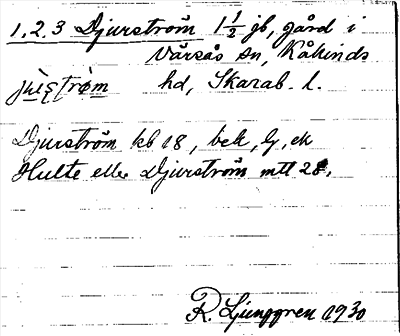 1.2.3 Djurström 1 1/2 gb, gård i
Vårsås sn, Kåkinds
hd, Skarab. l.
Djurström kb 18, bek, G, ek
Hulte eller Djurström mtl 28.
R. Ljunggren 1930